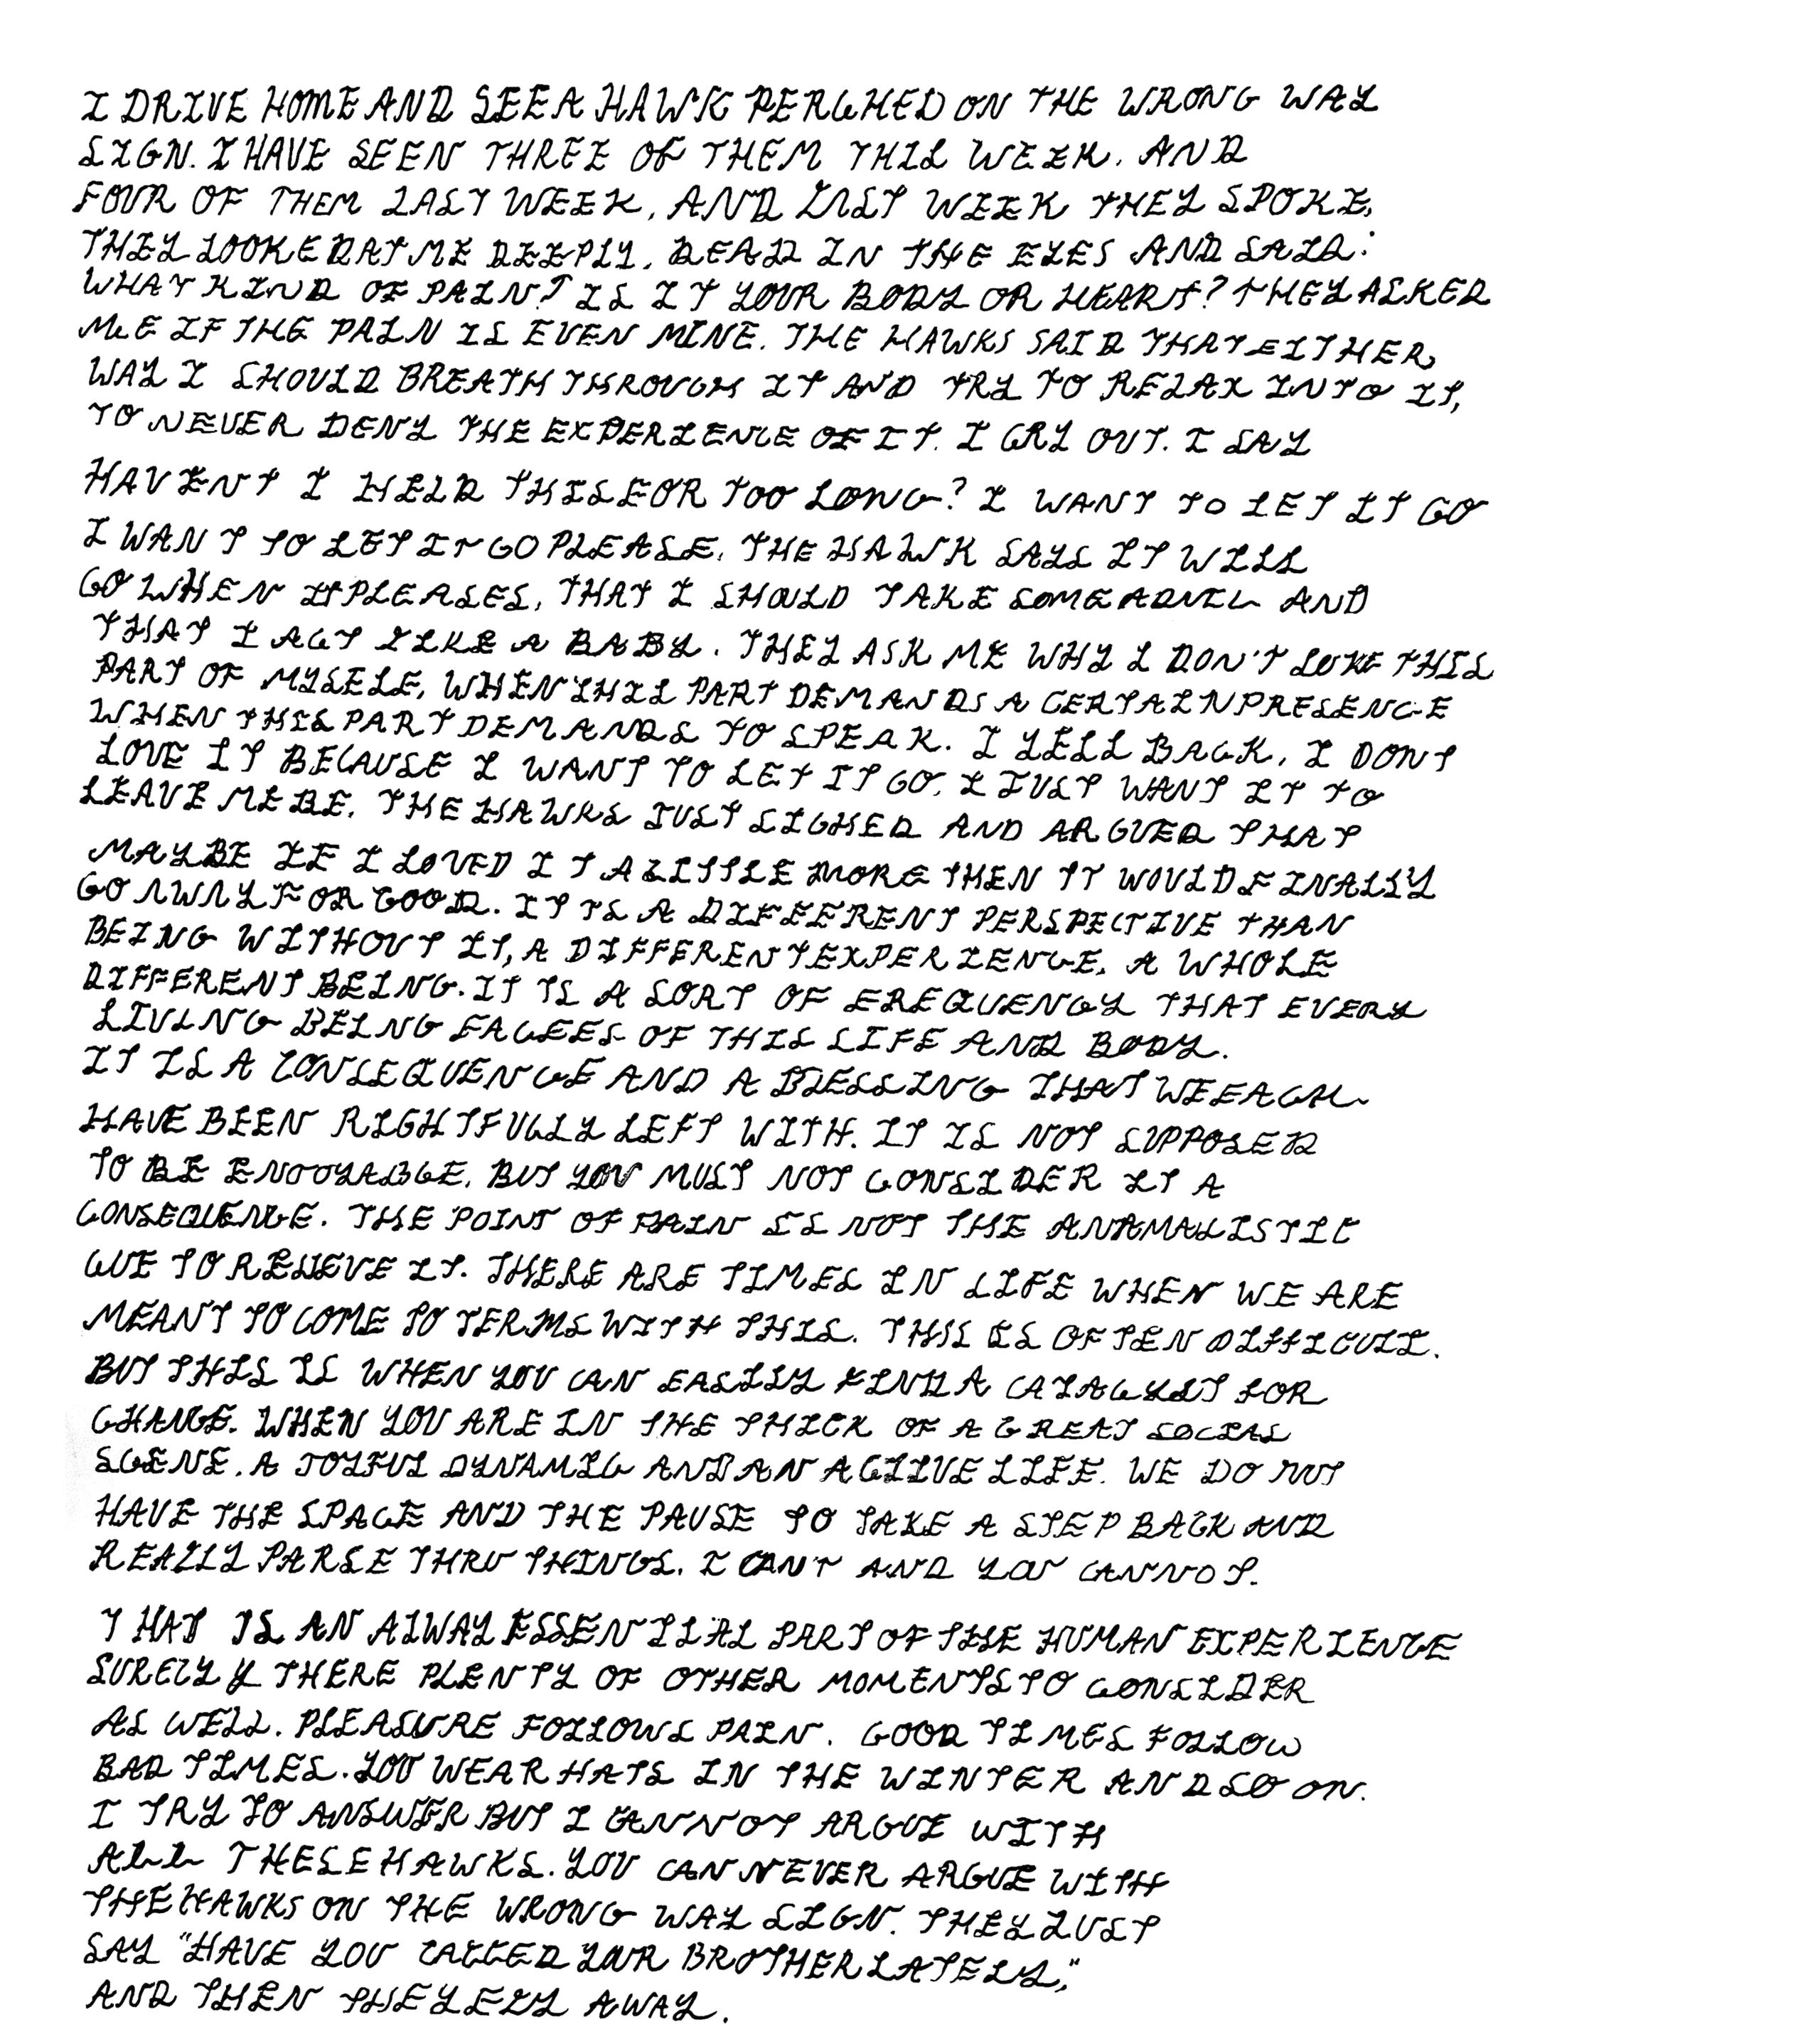 I DRIVE HOME AND SEE A HAWK PERCHED ON THE WRONG WAY
SIGN. I HAVE SEEN THREE OF THEM THIS WEEK. AND
FOUR OF THEM LAST WEEK, AND LAST WEEK THEY SPOKE,
THEY LOOKED AT ME DEEPLY, DEAD IN THE EYES AND SAID:
WHAT KIND OF PAIN? IS IT YOUR BODY OR HEART? THEY ASKED
ME IF THE PAIN IS EVEN MINE. THE HAWKS SAID THAT EITHER
WAY I SHOULD BREATH THROUGH IT AND TRY TO RELAX INTO IT,
TO NEVER DENY THE EXPERIENCE OF IT. I CRY OUT. I SAY
HAVENT I HELD THIS FOR TOO LONG? I WANT TO LET IT GO
I WANT TO LET IT GO PLEASE. THE HAWK SAYS IT WILL
GO WHEN IT PLEASES, THAT I SHOULD TAKE SOME ADVIL AND
THAT I ACT LIKE A BABY. THEY ASK ME WHY I DON'T LOVE THIS
PART OF MYSELF, WHEN THIS PART DEMANDS A CERTAIN PRESENCE
WHEN THIS PART DEMANDS TO SPEAK. I YELL BACK, I DONT
LOVE IT BECAUSE I WANT TO LET IT GO, I JUST WANT IT TO
LEAVE ME BE. THE HAWKS JUST SIGHED AND ARGUED THAT
MAYBE IF I LOVED IT A LITTLE MORE THEN IT WOULD FINALLY
GO AWAY FOR GOOD. IT IS A DIFFERENT PERSPECTIVE THAN
BEING WITHOUT IT, A DIFFERENT EXPERIENCE, A WHOLE
DIFFERENT BEING. IT IS A SORT OF FREQUENCY THAT EVERY
LIVING BEING FACEES OF THIS LIFE AND BODY.
IT IS A CONSEQUENCE AND A BLESSING THAT WE EACH
HAVE BEEN RIGHTFULLY LEFT WITH. IT IS NOT SUPPOSED
TO BE ENJOYABLE, BUT YOU MUST NOT CONSIDER IT A
CONSEQUENCE. THE POINT OF PAIN IS NOT THE ANAMALISTIC
CUE TO RELIEVE IT. THERE ARE TIMES IN LIFE WHEN WE ARE
MEANT TO COME TO TERMS WITH THIS. THIS IS OFTEN DIFFICULT.
BUT THIS IS WHEN YOU CAN EASILY FIND A CATACLYST FOR
CHANGE. WHEN YOU ARE IN THE THICK OF A GREAT SOCIAL
SCENE, A JOYFUL DYNAMIC AND AN ACTIVE LIFE. WE DO NOT
HAVE THE SPACE AND THE PAUSE TO TAKE A STEP BACK AND
REALLY PARSE THRU THINGS. I CAN'T AND YOU CANNOT.
THAT IS AN ALWAY ESSENTIAL PART OF THE HUMAN EXPERIENCE
SURELY THERE PLENTY OF OTHER MOMENTS TO CONSIDER
AS WELL. PLEASURE FOLLOWS PAIN. GOOD TIMES FOLLOW
BAD TIMES. YOU WEAR HATS IN THE WINTER AND SO ON.
I TRY TO ANSWER BUT I CANNOT ARGUE WITH
ALL THESE HAWKS. YOU CAN NEVER ARGUE WITH
THE HAWKS ON THE WRONG WAY SIGN. THEY JUST
SAY "HAVE YOU CALLED YOUR BROTHER LATELY,"
AND THEN THEY FLY AWAY.